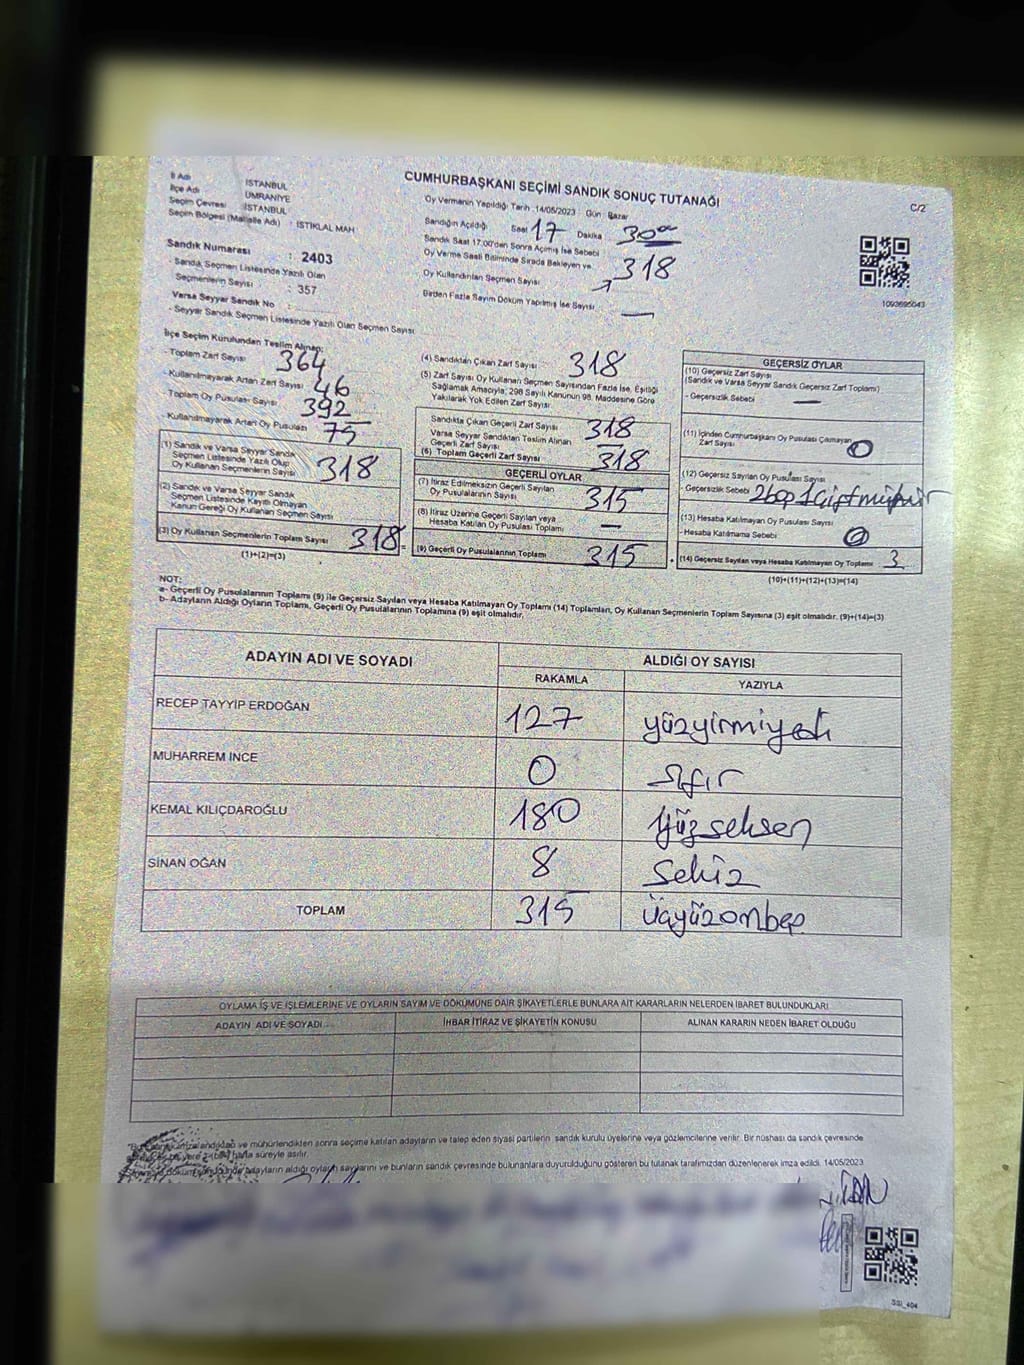 CUMHURBAŞKANI SEÇİMİ SANDIK SONUÇ TUTANAĞI
C/2
İl Adı İSTANBUL
İlçe Adı ÜMRANİYE
Seçim Çevresi İSTANBUL
Seçim Bölgesi (Mahalle Adı) : İSTİKLAL MAH
Sandık Numarası : 2403
- Sandık Seçmen Listesinde Yazılı Olan
Seçmenlerin Sayısı : 357
Varsa Seyyar Sandık No :
- Seyyar Sandık Seçmen Listesinde Yazılı Olan Seçmen Sayısı
Oy Vermenin Yapıldığı Tarih : 14/05/2023 Gün : Pazar
Sandığın Açıldığı Saat 17 Dakika 30
Sandık Saat 17.00'den Sonra Açılmış İse Sebebi
Oy Verme Saati Bitiminde Sırada Bekleyen ve
Oy Kullandırılan Seçmen Sayısı 318
Birden Fazla Sayım Döküm Yapılmış İse Sayısı —
1093695043
İlçe Seçim Kurulundan Teslim Alınan;
- Toplam Zarf Sayısı 364
- Kullanılmayarak Artan Zarf Sayısı 46
Toplam Oy Pusulası Sayısı 392
- Kullanılmayarak Artan Oy Pusulası 75
(1) Sandık ve Varsa Seyyar Sandık
Seçmen Listesinde Yazılı Olup
Oy Kullanan Seçmenlerin Sayısı 318
(2) Sandık ve Varsa Seyyar Sandık
Seçmen Listesinde Kayıtlı Olmayan
Kanun Gereği Oy Kullanan Seçmen Sayısı
(3) Oy Kullanan Seçmenlerin Toplam Sayısı 318 =
(1)+(2)=(3)
(4) Sandıktan Çıkan Zarf Sayısı : 318
(5) Zarf Sayısı Oy Kullanan Seçmen Sayısından Fazla İse, Eşitliği
Sağlamak Amacıyla, 298 Sayılı Kanunun 98. Maddesine Göre
Yakılarak Yok Edilen Zarf Sayısı
Sandıkta Çıkan Geçerli Zarf Sayısı 318
Varsa Seyyar Sandıktan Teslim Alınan
Geçerli Zarf Sayısı
(6) Toplam Geçerli Zarf Sayısı 318
GEÇERLİ OYLAR
(7) İtiraz Edilmeksizin Geçerli Sayılan
Oy Pusulalarının Sayısı 315
(8) İtiraz Üzerine Geçerli Sayılan veya
Hesaba Katılan Oy Pusulası Toplamı —
(9) Geçerli Oy Pusulalarının Toplamı 315 +
GEÇERSİZ OYLAR
(10) Geçersiz Zarf Sayısı
(Sandık ve Varsa Seyyar Sandık Geçersiz Zarf Toplamı)
- Geçersizlik Sebebi —
(11) İçinden Cumhurbaşkanı Oy Pusulası Çıkmayan
Zarf Sayısı 0
(12) Geçersiz Sayılan Oy Pusulası Sayısı
- Geçersizlik Sebebi 2boş 1çift mühür
(13) Hesaba Katılmayan Oy Pusulası Sayısı
- Hesaba Katılmama Sebebi 0
(14) Geçersiz Sayılan veya Hesaba Katılmayan Oy Toplamı 3
(10)+(11)+(12)+(13)=(14)
NOT:
a- Geçerli Oy Pusulalarının Toplamı (9) ile Geçersiz Sayılan veya Hesaba Katılmayan Oy Toplamı (14) Toplamları, Oy Kullanan Seçmenlerin Toplam Sayısına (3) eşit olmalıdır. (9)+(14)=(3)
b- Adayların Aldığı Oyların Toplamı, Geçerli Oy Pusulalarının Toplamına (9) eşit olmalıdır.
ADAYIN ADI VE SOYADI ALDIĞI OY SAYISI
RAKAMLA YAZIYLA
RECEP TAYYİP ERDOĞAN 127 yüzyirmiyedi
MUHARREM İNCE 0 sıfır
KEMAL KILIÇDAROĞLU 180 yüzseksen
SİNAN OĞAN 8 Sekiz
TOPLAM 315 üçyüzonbeş
OYLAMA İŞ VE İŞLEMLERİNE VE OYLARIN SAYIM VE DÖKÜMÜNE DAİR ŞİKAYETLERLE BUNLARA AİT KARARLARIN NELERDEN İBARET BULUNDUKLARI
ADAYIN ADI VE SOYADI İHBAR İTİRAZ VE ŞİKAYETİN KONUSU ALINAN KARARIN NEDEN İBARET OLDUĞU
ve mühürlendikten sonra seçime katılan adayların ve talep eden siyasi partilerin sandık kurulu üyelerine veya gözlemcilerine verilir. Bir nüshası da sandık çevresinde
hafta süreyle asılır.
adayların aldığı oyların sayılarını ve bunların sandık çevresinde bulunanlara duyurulduğunu gösteren bu tutanak tarafımızdan düzenlenerek imza edildi. 14/05/2023
SSİ_404